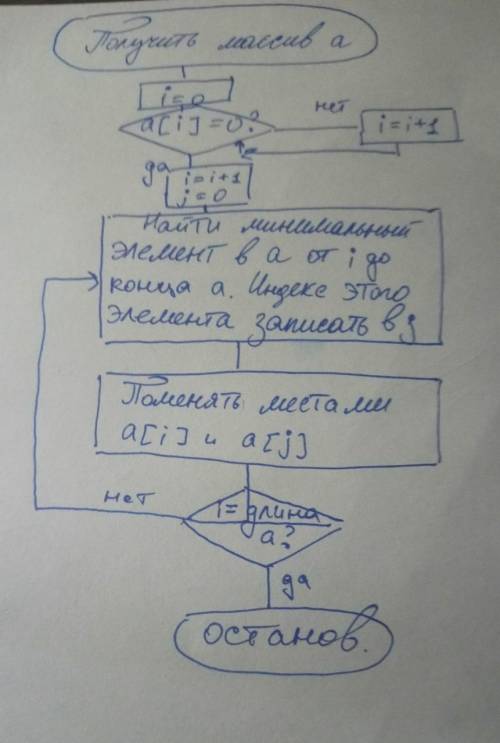 Получить массив a
i=0
a[i]=0?
нет
i=i+1
да
i=i+1
j=0
Найти минимальный
элемент в a от i до
конца a. Индекс этого
элемента записать в j
Поменять местами
a[i] и a[j]
нет
i= длина
a?
да
останов.